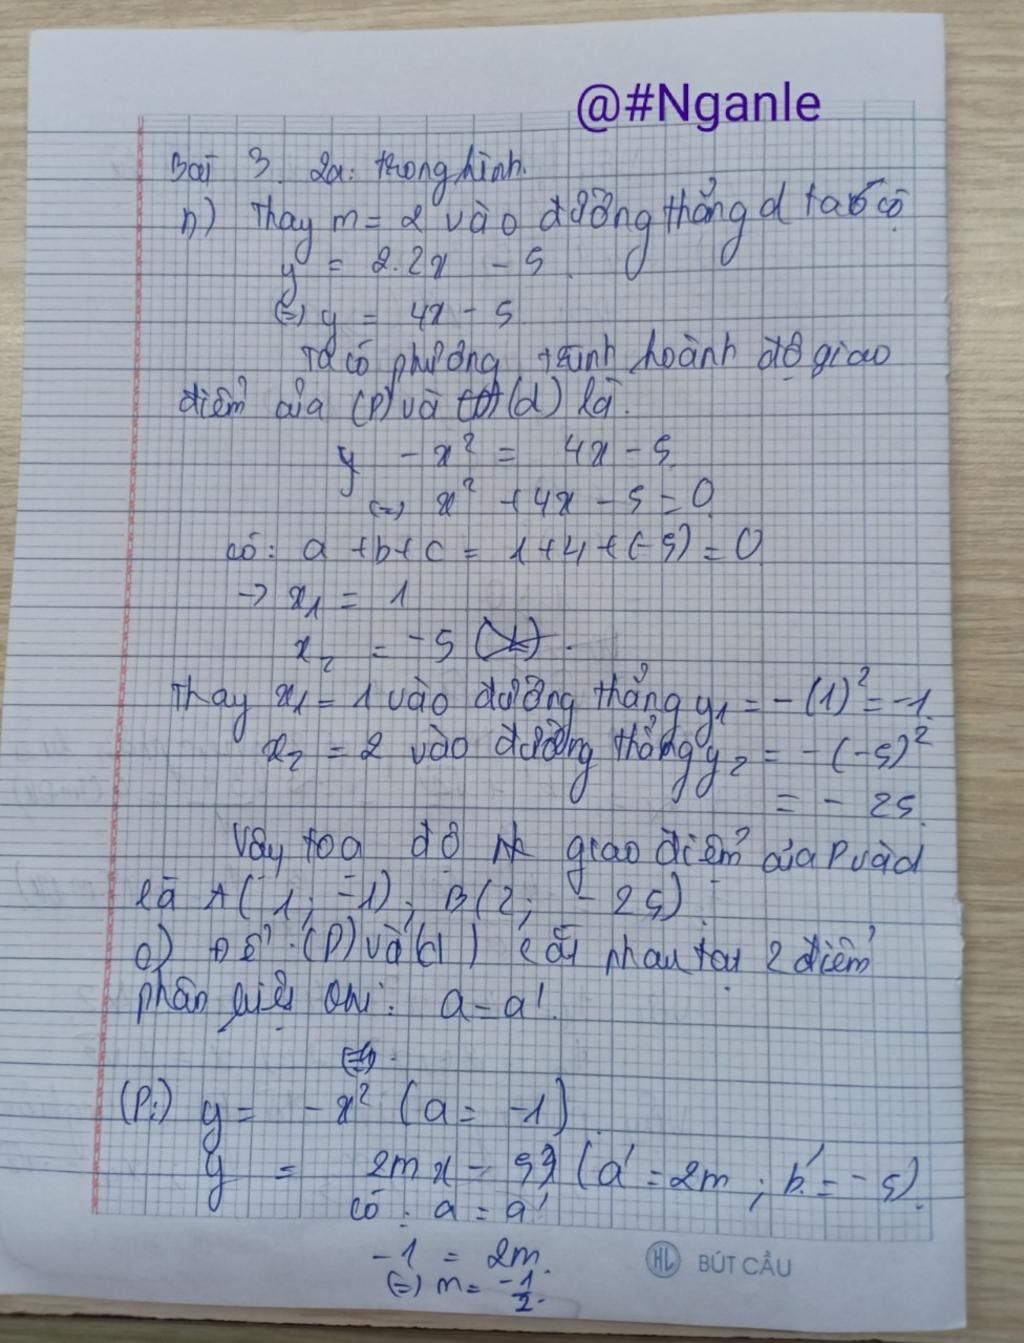 @#Nganle
Bài 3. 2a: trong hình.
n) Thay m = 2 vào đường thẳng d ta có
y = 2.2x - 5
(=) y = 4x - 5
Ta có phương trình hoành độ giao
điểm của (P) và (d) là.
y - x² = 4x - 5
(=) x² + 4x - 5 = 0
có: a + b + c = 1 + 4 + (-5) = 0
-> x₁ = 1
x₂ = -5
Thay x₁ = 1 vào đường thẳng y₁ = -(1)² = -1
x₂ = 2 vào đường thẳng y₂ = -(-5)²
= - 25
Vậy toạ độ giao điểm của P và d
là A(1; -1); B(2; - 25)
o) Để (P) và (d) cắt nhau tại 2 điểm
phân biệt khi: a = a'
(P:) y = -x² (a = -1)
y = 2mx - 5 (a' = 2m; b' = -5)
có: a = a'
-1 = 2m.
(=) m = -1/2.
HL BÚT CẢU